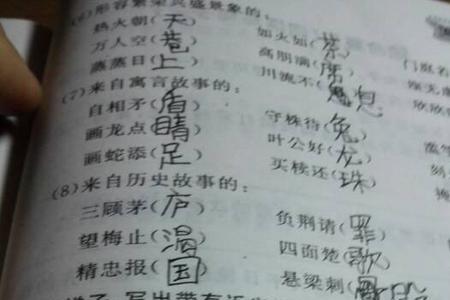 (6)形容繁荣兴盛景象的:
热火朝(天) 如火如(荼)
万人空(巷) 高朋满(席) 门庭若
蒸蒸日(上) 川流不(息)
(7)来自寓言故事的:
自相矛(盾) 守株待(兔)
画龙点(睛) 叶公好(龙)
画蛇添(足) 买椟还(珠)
(8)来自历史故事的:
三顾茅(庐) 负荆请(罪)
望梅止(渴) 四面楚(歌)
精忠报(国) 悬梁刺(股)